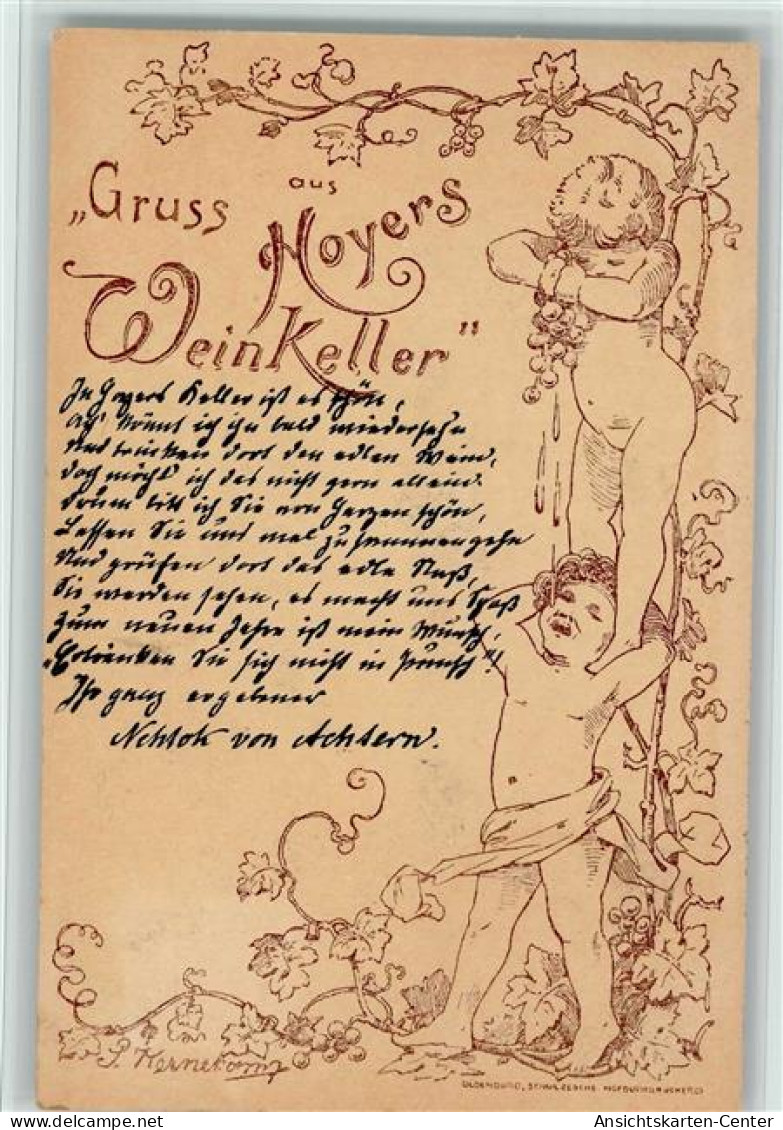 „Gruss
aus
Hoyers
WeinKeller"
In Hoyers Keller ist es schön,
Ach könnt ich ihn bald wiedersehn
Und trinken dort den edlen Wein,
doch möcht ich das nicht gern allein.
Drum bitt ich Sie von Herzen schön,
Lassen Sie uns mal zusammen gehn
Und prüfen dort das edle Naß,
Sie werden sehen, es macht uns Spaß
Zum neuen Jahre ist mein Wunsch,
„Ertränken Sie sich nicht in Punsch"!
Ihr ganz ergebener
von Achtern.
OLDENBURG, SCHULZESCHE HOFBUCHDRUCKEREI
Ansichtskarten-Center